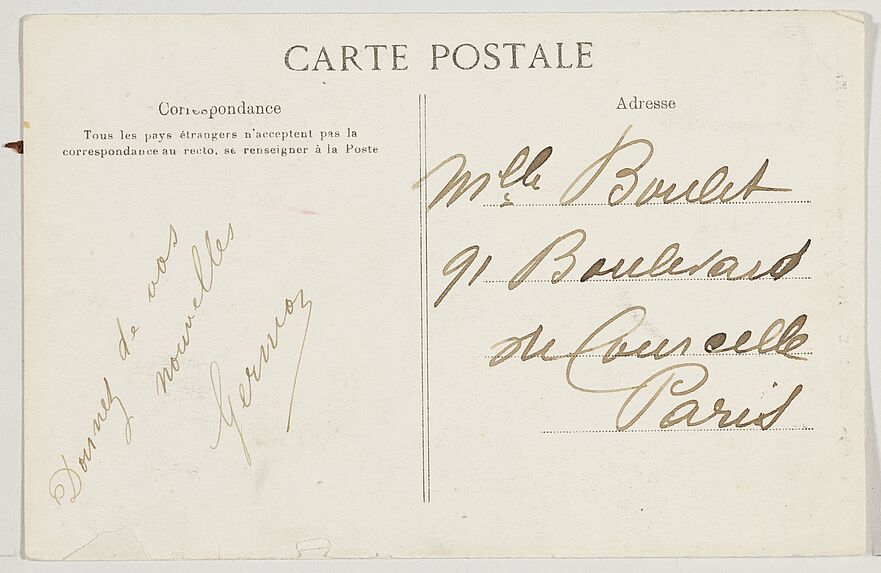 CARTE POSTALE
Correspondance
Tous les pays étrangers n'acceptent pas la
correspondance au recto, se renseigner à la Poste
Donnez de vos
nouvelles
Adresse
Mlle Boulet
91 Boulevard
de Courcelle
Paris